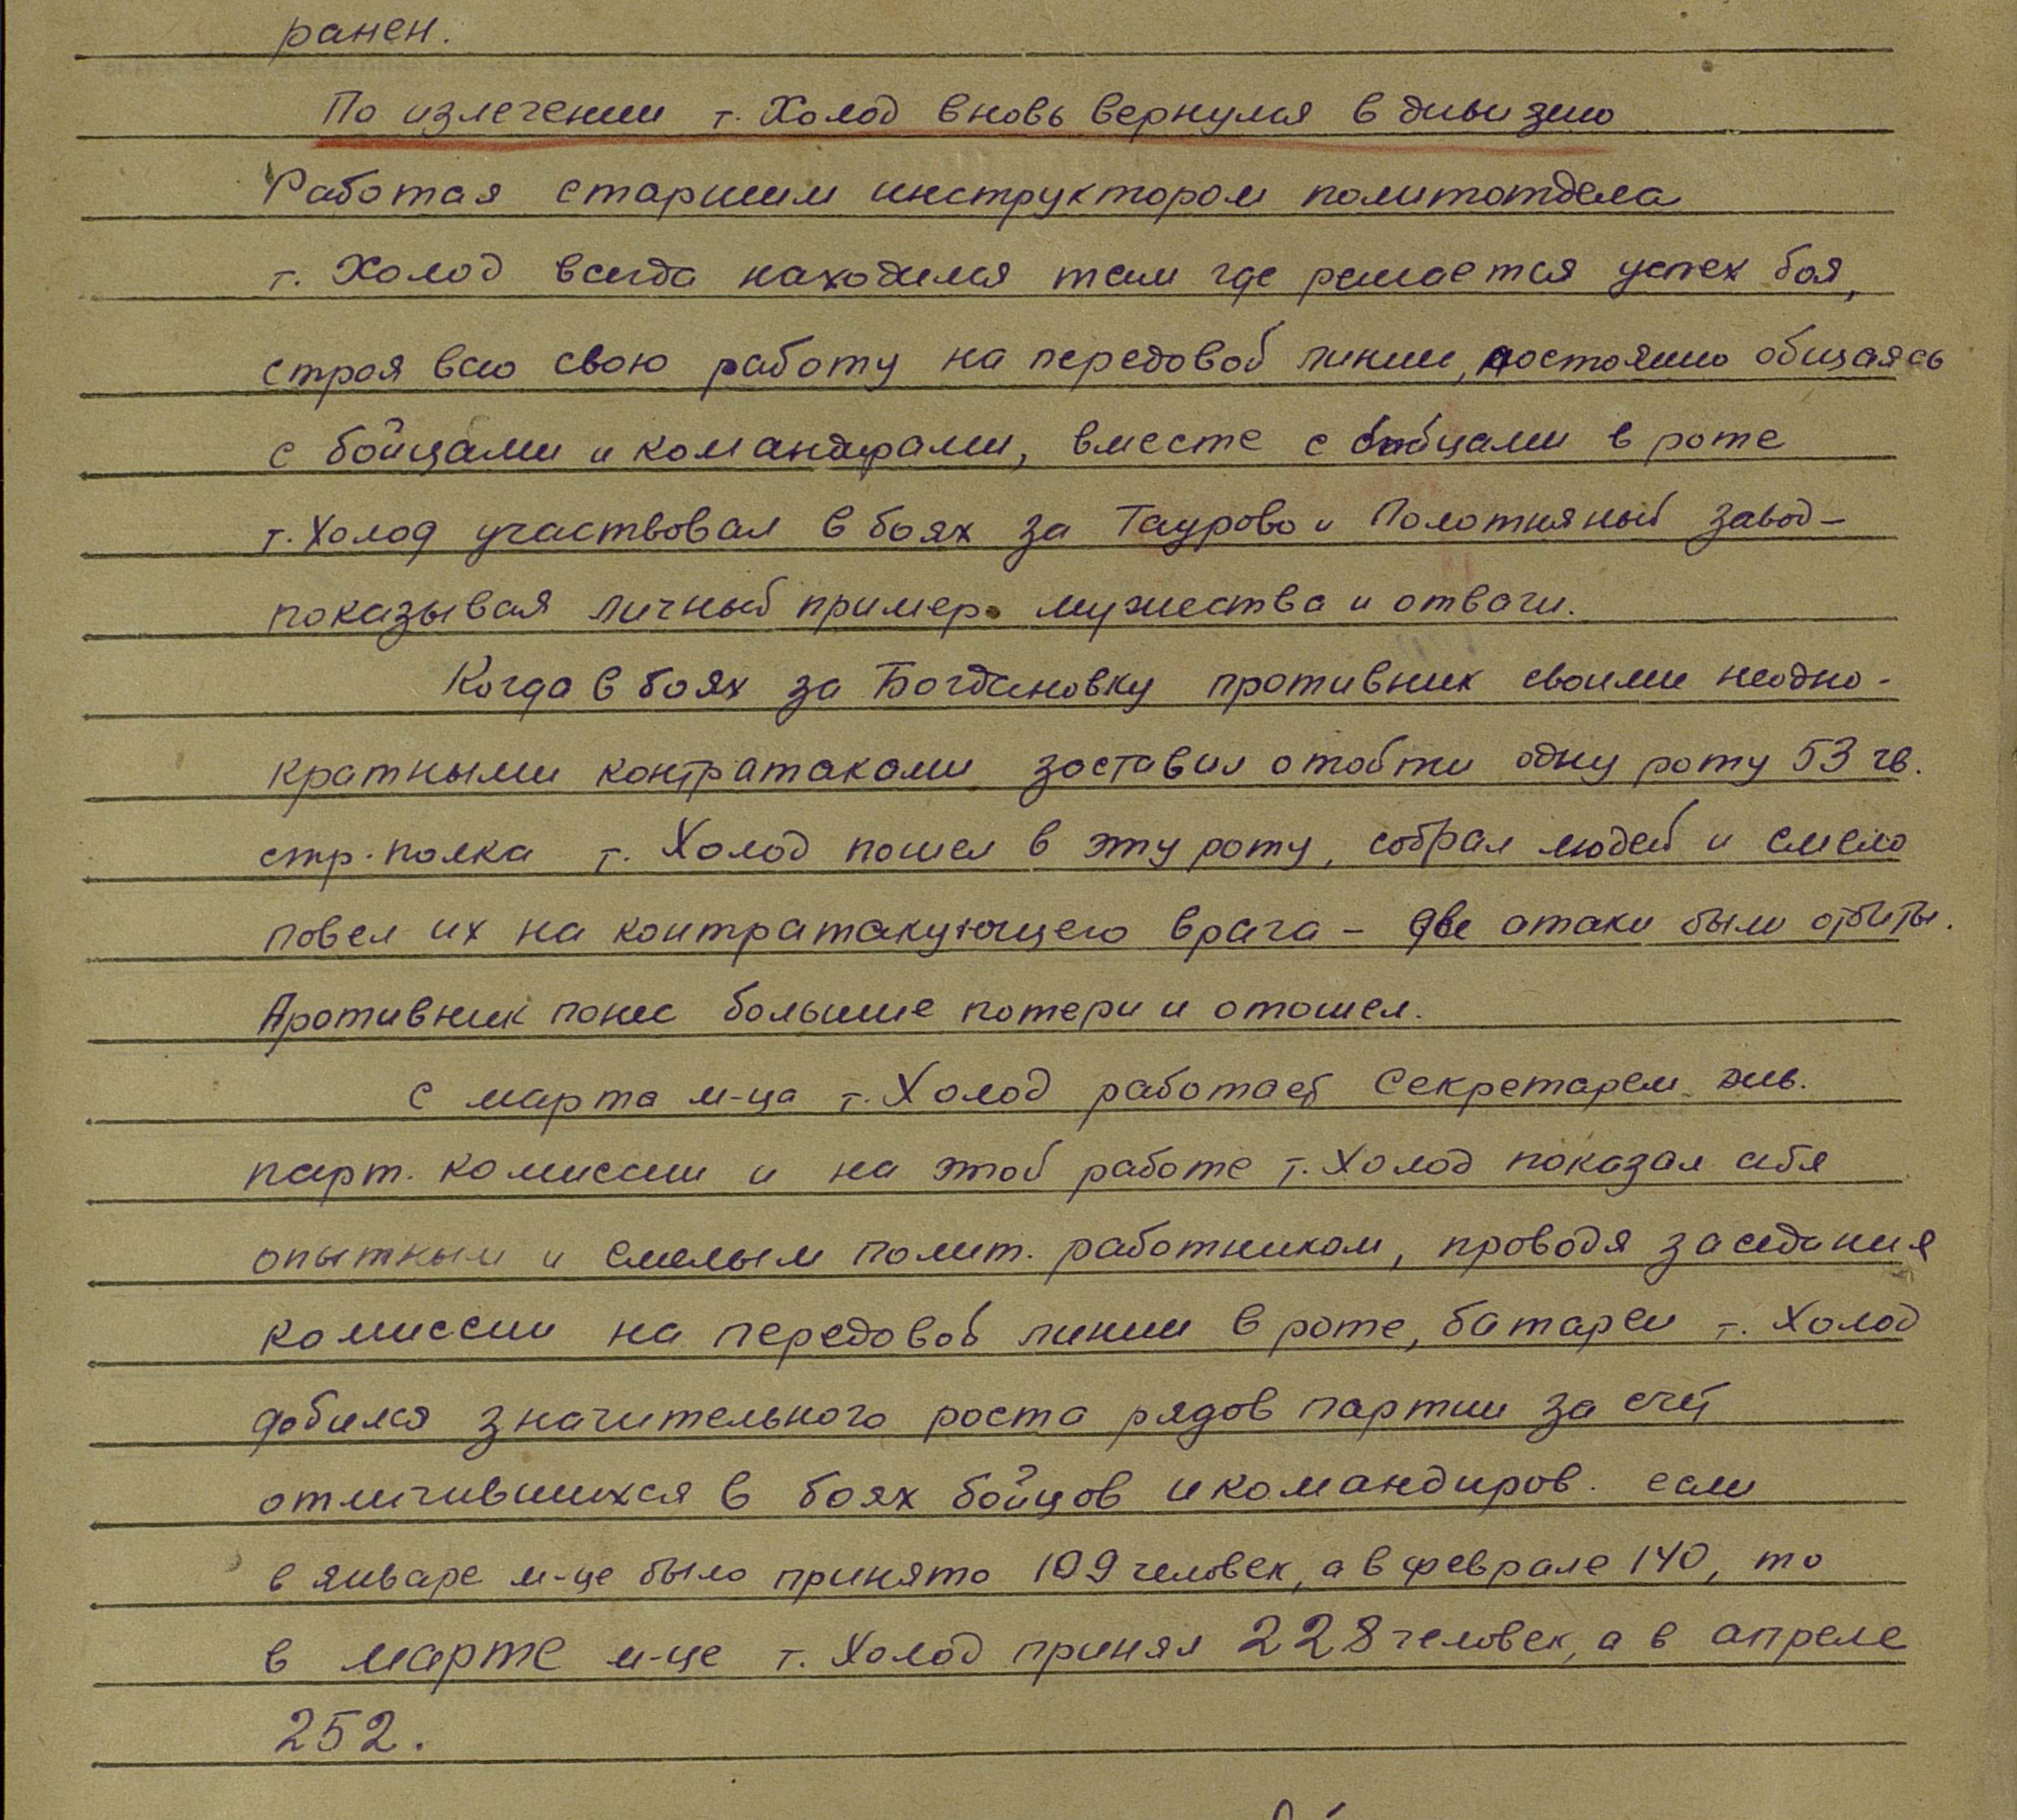 ранен.
По излечении т. Холод вновь вернулся в дивизию
Работая старшим инструктором политотдела
т. Холод всегда находился там где решается успех боя,
строя всю свою работу на передовой линии, постоянно общаясь
с бойцами и командирами, вместе с бойцами в роте
т. Холод участвовал в боях за Таурово и Полотняный завод –
показывая личный пример мужества и отваги.
Когда в боях за Богдановку противник своими неодно-
кратными контратаками заставил отойти одну роту 53 гв.
стр. полка т. Холод пошел в эту роту, собрал людей и смело
повел их на контратакующего врага – две атаки были отбиты.
Противник понес большие потери и отошел.
С марта м-ца т. Холод работает Секретарем див.
парт. комиссии и на этой работе т. Холод показал себя
опытным и смелым полит. работником, проводя заседания
комиссии на передовой линии в роте, батареи т. Холод
добился значительного роста рядов партии за счет
отличившихся в боях бойцов и командиров. если
в январе м-це было принято 109 человек, а в феврале 140, то
в марте м-це т. Холод принял 228 человек, а в апреле
252.